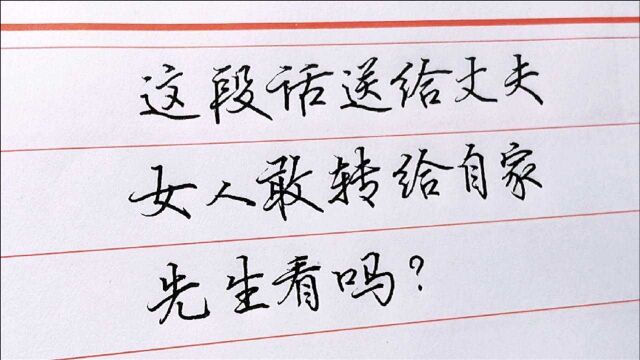 这段话送给丈夫
女人敢转给自家
先生看吗?